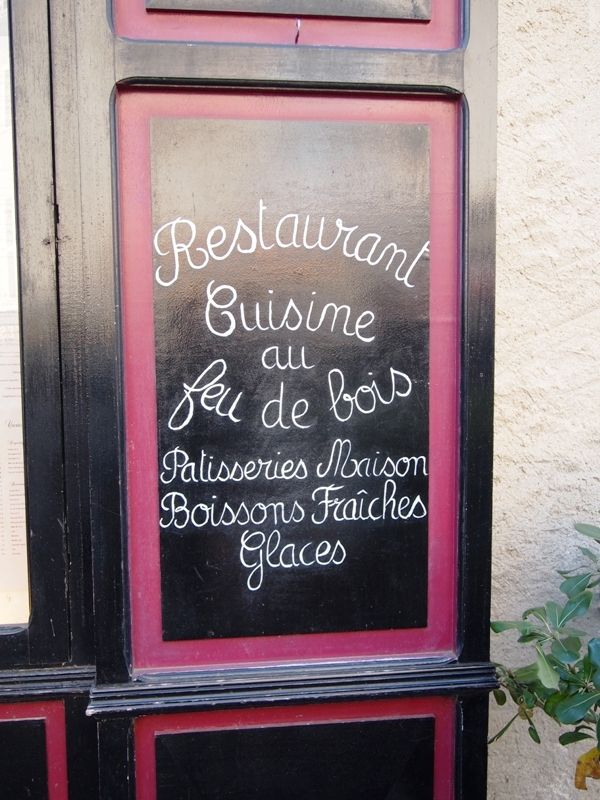 Restaurant
Cuisine
au
feu de bois
Patisseries Maison
Boissons Fraîches
Glaces